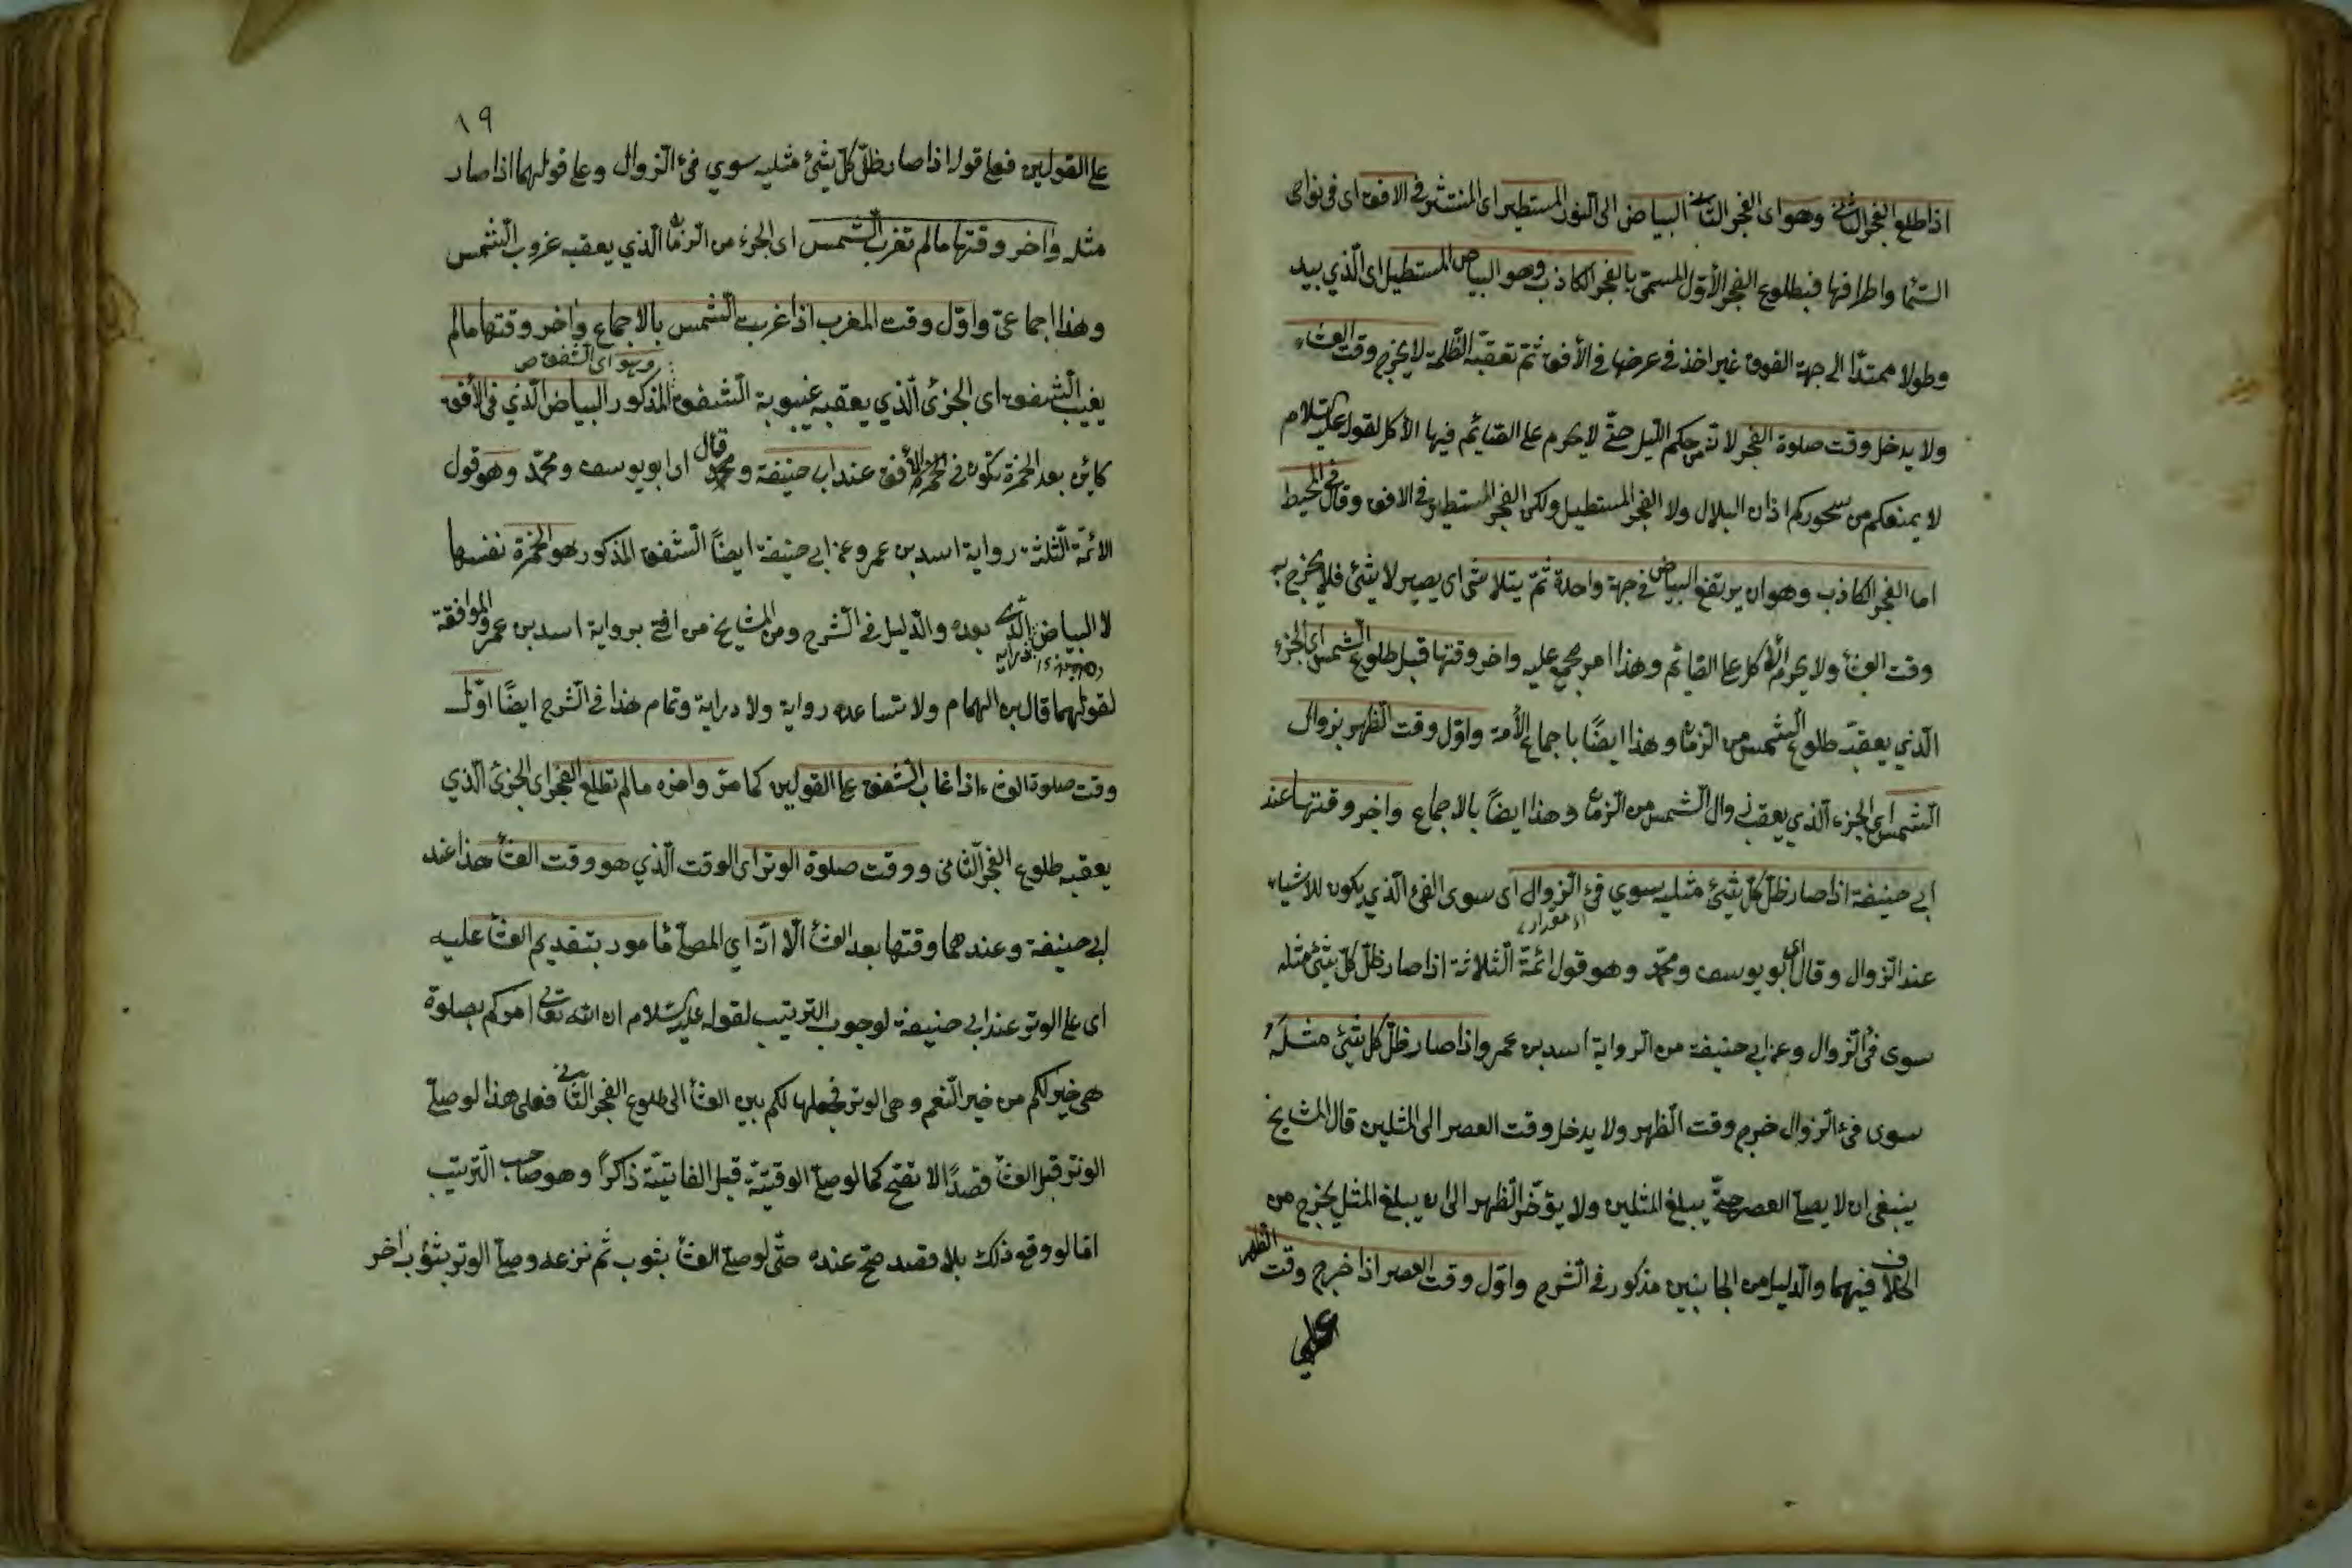 اذا طلع الفجر الثاني وهو اى الفجر الثاني البياض الى النور المستطير اى المنتشر في الافق اى في نواحى
السما واطرافها فبطلوع الفجر الأول المسمى بالفجر الكاذب وهو البياض المستطيل اى الذي يبد
وطولا ممتدا الى جهة الفوق غير اخذ في عرضها في الأفق ثم تعقبه الظلمة لا يخرج وقت العشاء
ولا يدخل وقت صلوة الفجر لا تن حكم الليل حتى لا يحرم على القائم فيها الأكل لقوله عليه السلام
لا يمنعكم من سحوركم اذان البلال ولا الفجر المستطيل ولكن الفجر المستطير في الافق وقال في المحيط
اما الفجر الكاذب وهو ان يرتفع البياض في جهة واحدة ثم يتلاشى اى يصير لا شئ فلا يخرج به
وقت العشأ ولا يحرم الأكل على القائم وهذا امر مجمع عليه واخر وقتها قبل طلوع الشمس اى الجزء
الذي يعقبه طلوع الشمس من الزمان وهذا ايضًا باجماع الأمة واول وقت الظهر بزوال
الشمس اى الجزء الذي يعقب زوال الشمس من الزمان وهذا ايضًا بالاجماع واخر وقتها عند
ابي حنيفة اذا صار ظل كل شئ مثليه سوي فئ الزوال اى سوى الفئ الذي يكون للاشياء
عند الزوال وقال اى ابو يوسف ومحمد وهو قول ائمة الثلاثة اذا صار ظل كل شئ مثله
سوى فئ الزوال وعن ابي حنيفة من الرواية اسد بن عمرو اذا صار ظل كل شئ مثلهُ
سوى فئ الزوال خرج وقت الظهر ولا يدخل وقت العصر الى المثلين قال المشايخ
ينبغي ان لا يصلى العصر حتى يبلغ المثلين ولا يؤخر الظهر الى ان يبلغ المثل يخرج من
الخلاف فيهما والدليل من الجانبين مذكور في الشرح واول وقت العصر اذا خرج وقت الظهر
على
١٩
على القولين فعلى قوله اذا صار ظل كل شئ مثليه سوي فئ الزوال وعلى قولهما اذا صار
مثله واخر وقتها مالم تغرب الشمس اى الجزء من الزمان الذي يعقبه غروب الشمس
وهذا اجماعى واول وقت المغرب اذا غربت الشمس بالاجماع واخر وقتها مالم
وهو اى الشفق ص
يغيب الشفق اى الجزئ الذي يعقبه غيبوبة الشفق المذكور البياض الذي في الأفق
كائن بعد الحمرة تكون في الأفق عند ابى حنيفة ومحمد قال ابو يوسف ومحمد وهو قول
الائمة الثلثة رواية اسد بن عمرو عن ابي حنيفة ايضًا الشفق المذكور هو الحمرة نفسها
لا البياض الذي بعده والدليل في الشرح ومن المشايخ من افتى برواية اسد بن عمرو الموافقة
لقولهما قال بن الهمام ولا تساعده رواية ولا دراية وتمام هذا في الشرح ايضًا اول
وقت صلوة العشاء اذا غاب الشفق على القولين كما مر واخره مالم تطلع الفجر اى الجزئ الذي
يعقبه طلوع الفجر الثانى ووقت صلوة الوتر اى الوقت الذي هو وقت العشأ هذا عند
ابي حنيفة وعندهما وقتها بعد العشأ الا انه اي المصلى مأمور بتقديم العشأ عليه
اى على الوتر عند ابي حنيفة لوجوب الترتيب لقوله عليه السلام ان الله تعالى امركم بصلوة
هى خير لكم من خير النعم وهى الوتر فجعلها لكم بين العشأ الى طلوع الفجر الثاني فعلى هذا لو صلى
الوتر قبل العشأ قصدًا لا تصح كما لو صلى الوقتيّة قبل الفائتيّة ذاكرًا وهو صاحب الترتيب
اما لو وقع ذلك بلا قصد صح عنده حتى لو صلى العشأ بثوب ثم نزعه وصلى الوتر بثوب اخر